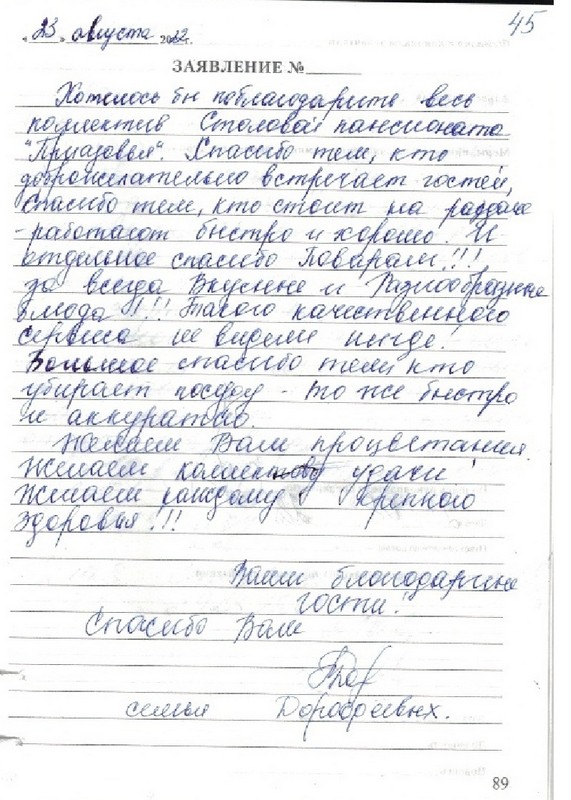 45
"23" августа 2022 г.
ЗАЯВЛЕНИЕ №
Хотелось бы поблагодарить весь
коллектив Столовой пансионата
"Приазовья". Спасибо тем, кто
доброжелательно встречает гостей,
спасибо тем, кто стоит на раздаче
- работают быстро и хорошо. И
отдельное спасибо Поварам!!!
за всегда Вкусные и Разнообразные
блюда!!! Такого качественного
сервиса не видели нигде!
Большое спасибо тем кто
убирает посуду - то же быстро
и аккуратно.
Желаем Вам процветания.
Желаем коллективу удачи!
Желаем каждому крепкого
здоровья!!!
Ваши благодарные
гости!
Спасибо Вам
семья Дорофеевых.
89